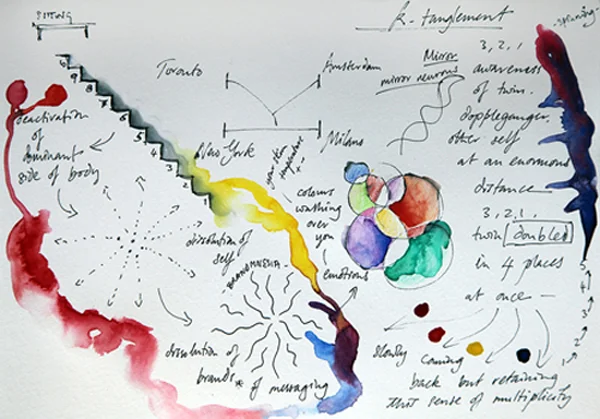 SITTING
k-tanglement
spinning
Toronto
Amsterdam
New York
Milano
Mirror
mirror neurons
deactivation
of
dominant
side of body
10
9
8
7
6
5
4
3
colours
washing
over
you
emotions
dissolution of
self
dissolution of
brands
* of messaging
3, 2, 1
awareness
of twin.
doppleganger.
other self
at an enormous
distance
3, 2, 1,
twin doubled
in 4 places
at once —
slowly coming
back but retaining
that sense of multiplicity
5
4
3
2
1